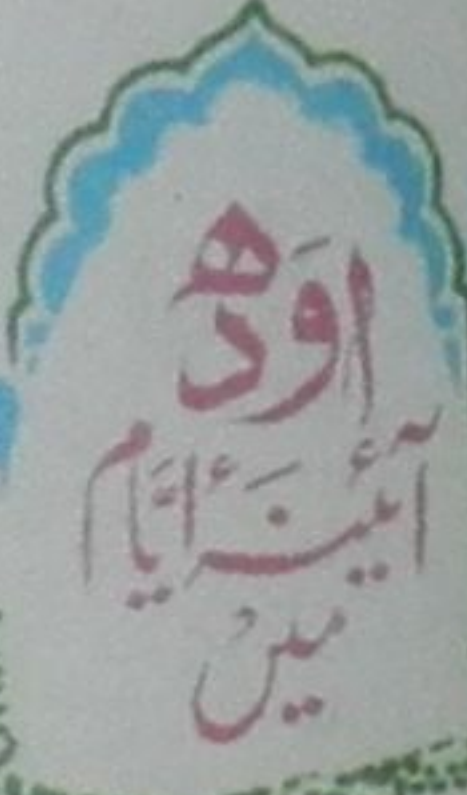 اَودھ
آئینۂ ایّام
میں